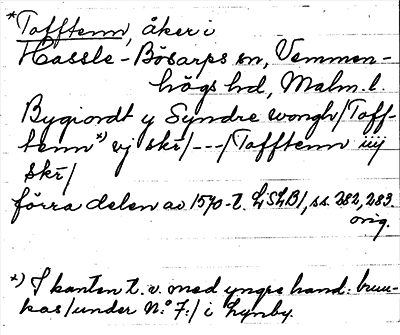 *Tofftenn, åker i
Hassle-Bösarps sn, Vemmen-
högs hd, Malm. l.
Bygiordt y Syndre wongh/Toff-
tenn*) vj skr/---/Tofftenn iiij
skr/
förra delen av 1570-t. LSLB1, ss. 282, 283.
orig.
*) I kanten t. v. med yngre hand: bruu-
kas/under N:o 7:/ i Lynby.